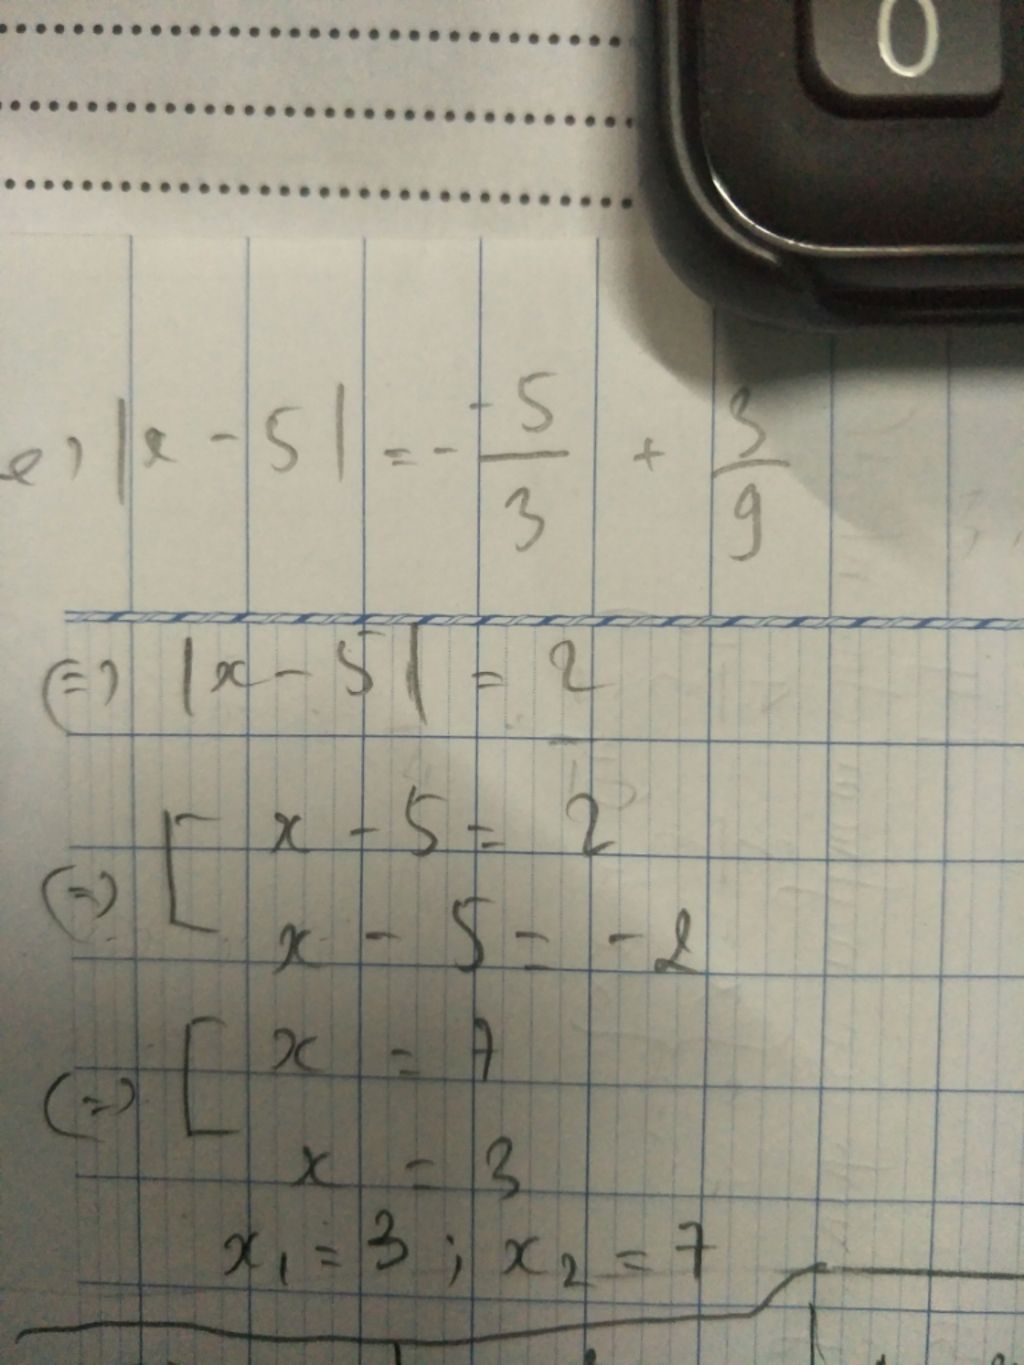 0
e, |x - 5| = - \frac{-5}{3} + \frac{3}{9}
(=) |x - 5| = 2
(=) [ x - 5 = 2
x - 5 = -2
(=) [ x = 7
x = 3
x₁ = 3 ; x₂ = 7